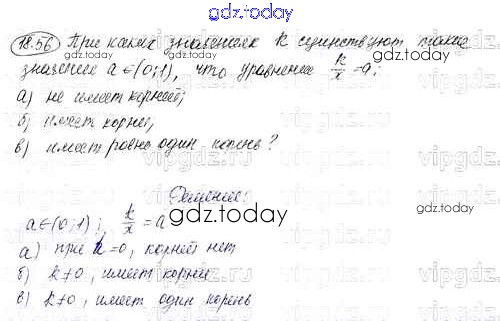 gdz.today
18.56 При каких значениях k существуют такие
значение a ∈ (0;1), что уравнение k/x = a:
а) не имеет корней;
б) имеет корни;
в) имеет ровно один корень?
Решение:
a ∈ (0;1); k/x = a
а) при k = 0, корней нет
б) k ≠ 0, имеет корни
в) k ≠ 0, имеет один корень
gdz.today
gdz.today
gdz.today
gdz.today
gdz.today
vipgdz.ru
vipgdz.ru
vipgdz.ru